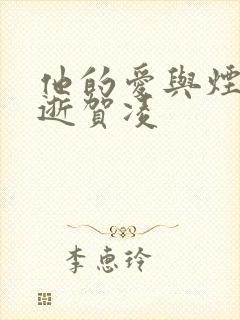 他的愛與煙
逝賀凌
李惠玲